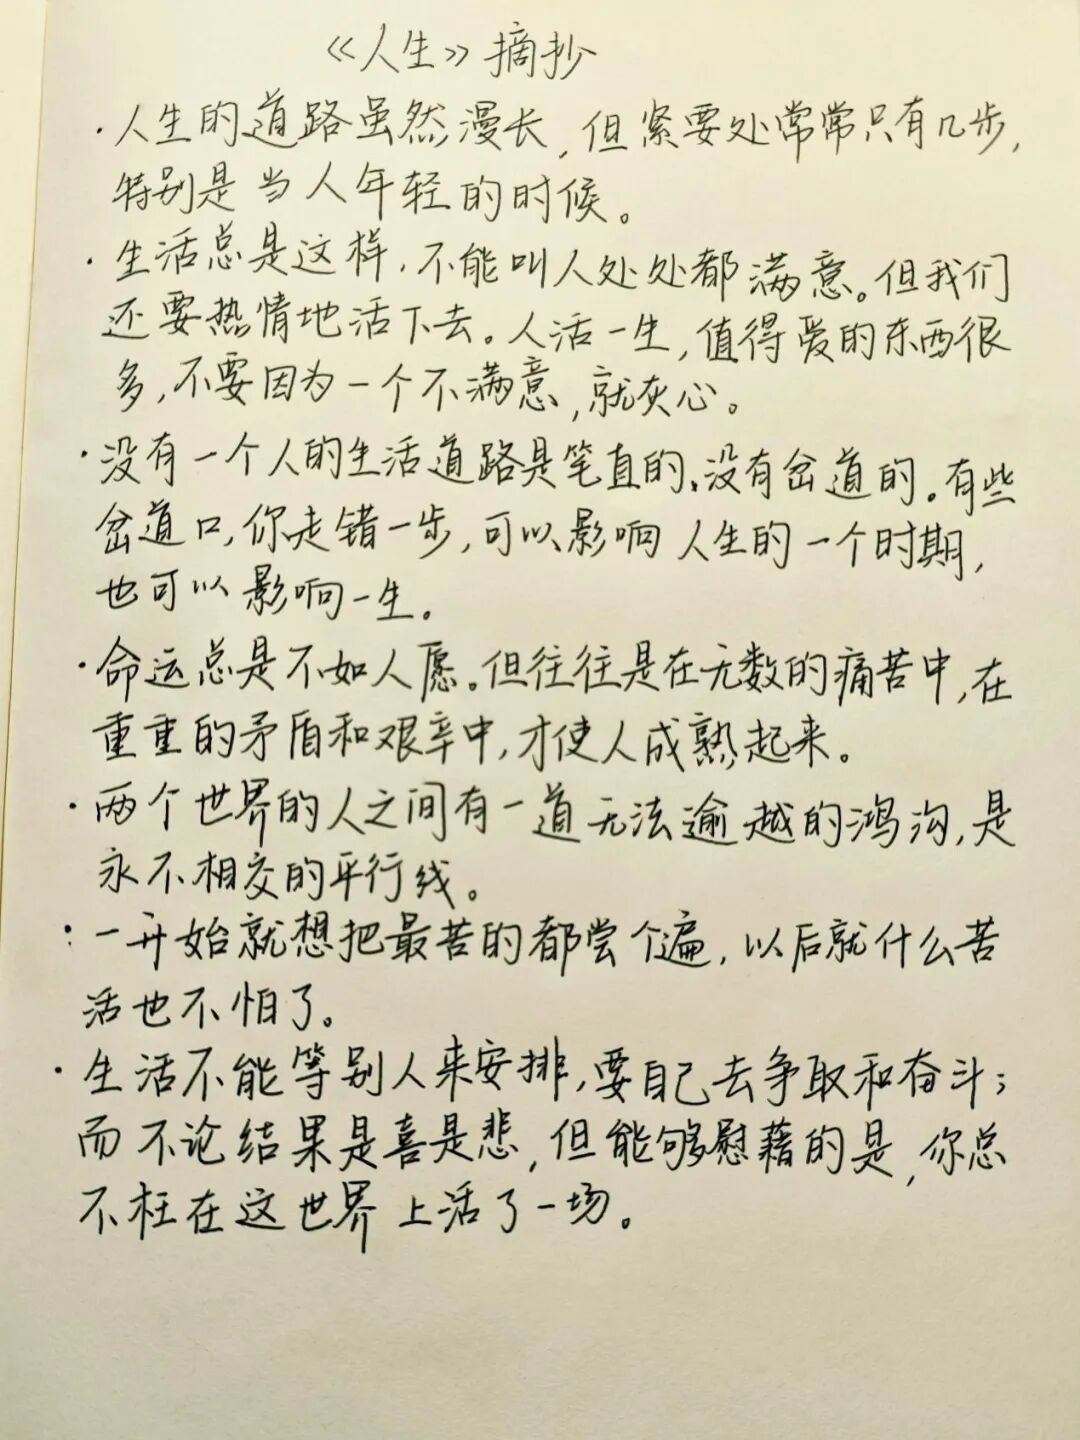 《人生》摘抄
·人生的道路虽然漫长,但紧要处常常只有几步,
特别是当人年轻的时候。
·生活总是这样,不能叫人处处都满意。但我们
还要热情地活下去。人活一生,值得爱的东西很
多,不要因为一个不满意,就灰心。
·没有一个人的生活道路是笔直的、没有岔道的。有些
岔道口,你走错一步,可以影响人生的一个时期,
也可以影响一生。
·命运总是不如人愿。但往往是在无数的痛苦中,在
重重的矛盾和艰辛中,才使人成熟起来。
·两个世界的人之间有一道无法逾越的鸿沟,是
永不相交的平行线。
·一开始就想把最苦的都尝个遍,以后就什么苦
活也不怕了。
·生活不能等别人来安排,要自己去争取和奋斗;
而不论结果是喜是悲,但能够慰藉的是,你总
不枉在这世界上活了一场。